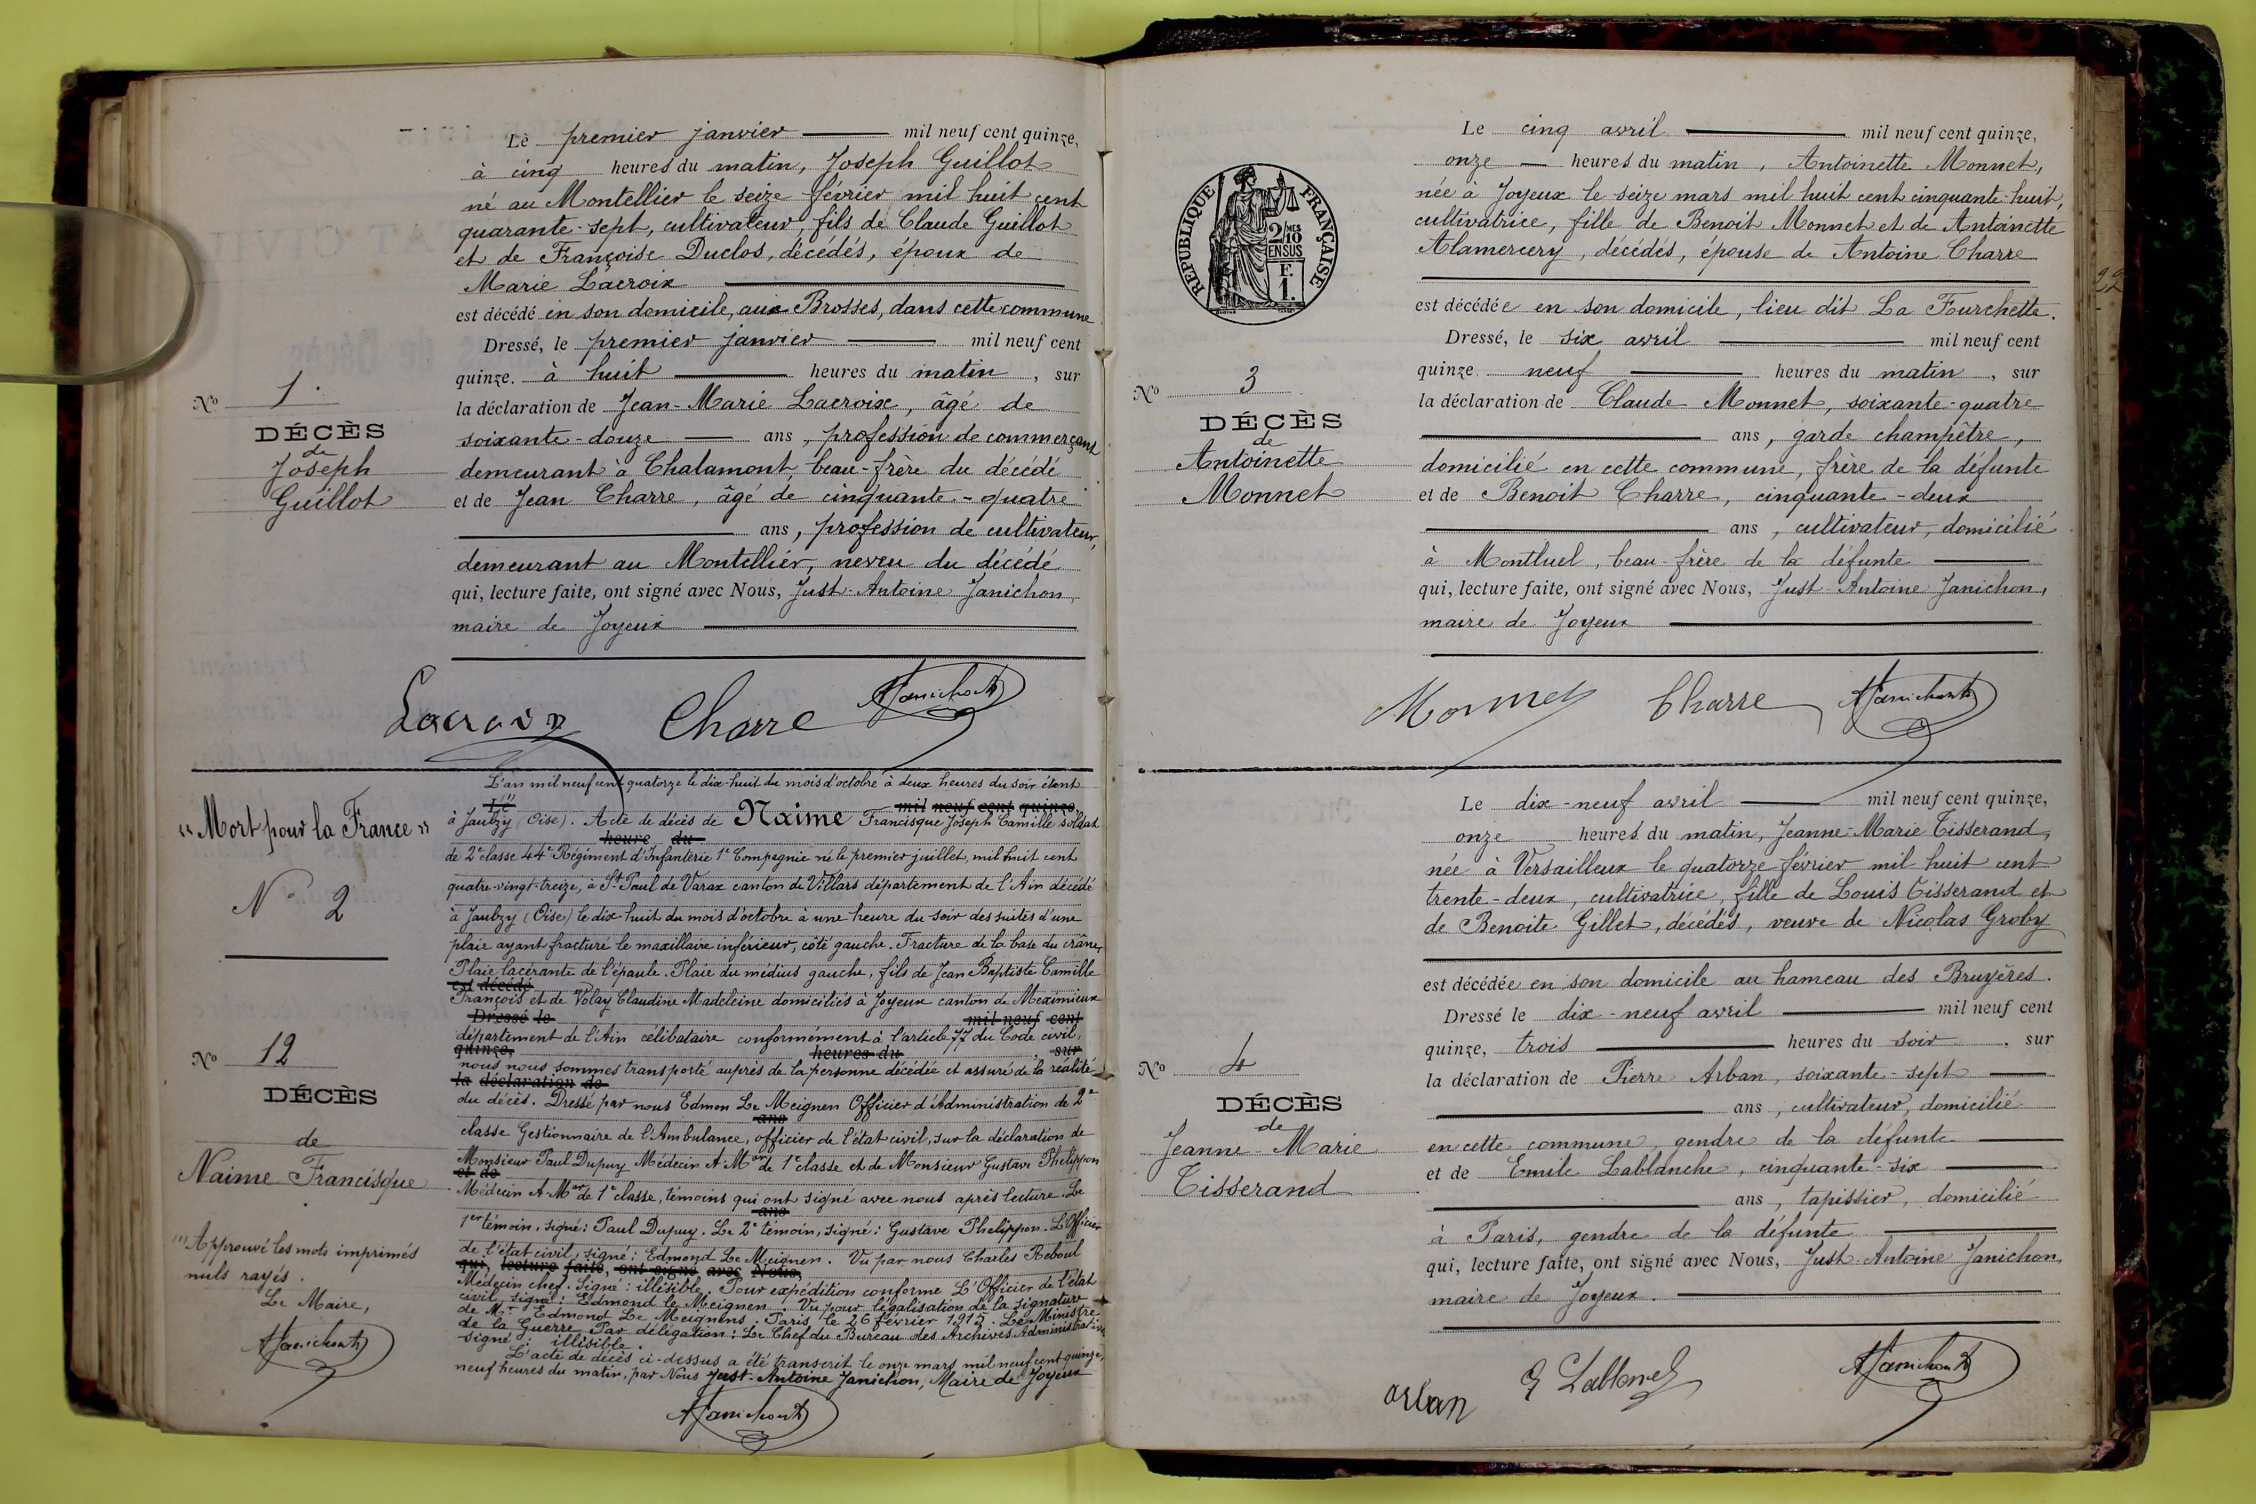 Le premier janvier mil neuf cent quinze,
à cinq heures du matin, Joseph Guillot
né au Montellier le seize février mil huit cent
quarante-sept, cultivateur, fils de Claude Guillot
et de Françoise Duclos, décédés, époux de
Marie Lacroix
est décédé en son domicile, aux Brosses, dans cette commune
Dressé, le premier janvier mil neuf cent
quinze. à huit heures du matin, sur
la déclaration de Jean-Marie Lacroix, âgé de
soixante-douze ans, profession de commerçant
demeurant à Chalamont, beau-frère du décédé
et de Jean Charre, âgé de cinquante-quatre
ans, profession de cultivateur,
demeurant au Montellier, neveu du décédé
qui, lecture faite, ont signé avec Nous, Just-Antoine Janichon,
maire de Joyeux
No 1.
DÉCÈS
de
Joseph
Guillot
Lacroix Charre AJanichon
"Mort pour la France"
No 2
No 12
DÉCÈS
de
Naime Francisque
(1) Approuvé les mots imprimés
nuls rayés.
Le Maire,
AJanichon
L'an mil neuf cent quatorze le dix-huit du mois d'octobre à deux heures du soir étant
Le mil neuf cent quinze,
à Jaulzy (Oise). Acte de décès de Naime Francisque Joseph Camille soldat
heure du
de 2e classe 44e Régiment d'Infanterie 1e Compagnie né le premier juillet, mil huit cent
quatre-vingt-treize, à St Paul de Varax canton de Villars département de l'Ain décédé
à Jaulzy (Oise) le dix huit du mois d'octobre à une heure du soir des suites d'une
plaie ayant fracturé le maxillaire inférieur, côté gauche. Fracture de la base du crâne,
Plaie lacérante de l'épaule. Plaie du médius gauche, fils de Jean Baptiste Camille
est décédé
François et de Volay Claudine Madeleine domiciliés à Joyeux canton de Meximieux
Dressé le mil neuf cent
département de l'Ain célibataire conformément à l'article 77 du Code civil,
quinze, heures du , sur
nous nous sommes transporté auprès de la personne décédée et assuré de la réalité
la déclaration de
du décès. Dressé par nous Edmon Le Meignen Officier d'Administration de 2e
ans
classe Gestionnaire de l'Ambulance, officier de l'état civil, sur la déclaration de
Monsieur Paul Dupuy Médecin A. Mor de 1e classe et de Monsieur Gustave Phelippon
et de
Médecin A-Mor de 1e classe, témoins qui ont signé avec nous après lecture. Le
ans
1er témoin, signé: Paul Dupuy. Le 2e témoin, signé: Gustave Phelippon. L'Officier
de l'état civil, signé: Edmond Le Meignen. Vu par nous Charles Reboul
qui, lecture faite, ont signé avec Nous,
Médecin chef. Signé: illisible. Pour expédition conforme L'Officier de l'état
civil, signé: Edmond le Meignen. Vu pour légalisation de la signature
de Mr Edmond Le Meignens. Paris, le 26 février 1915. Le Ministre
de la Guerre Par délégation: Le Chef du Bureau des Archives Administratives
signé: illisible.
L'acte de décès ci-dessus a été transcrit le onze mars mil neuf cent quinze,
neuf heures du matin, par Nous Just-Antoine Janichon, Maire de Joyeux
AJanichon
RÉPUBLIQUE FRANÇAISE
2/10 MES
EN SUS
F.
1.
Le cinq avril mil neuf cent quinze,
onze heures du matin, Antoinette Monnet,
née à Joyeux le seize mars mil huit cent cinquante-huit,
cultivatrice, fille de Benoit Monnet et de Antoinette
Alamercery, décédés, épouse de Antoine Charre
est décédée en son domicile, lieu dit La Fourchette.
Dressé, le six avril mil neuf cent
quinze. neuf heures du matin, sur
la déclaration de Claude Monnet, soixante-quatre
ans, garde champêtre,
domicilié en cette commune, frère de la défunte
et de Benoit Charre, cinquante-deux
ans, cultivateur, domicilié
à Montluel, beau-frère de la défunte
qui, lecture faite, ont signé avec Nous, Just-Antoine Janichon,
maire de Joyeux
No 3
DÉCÈS
de
Antoinette
Monnet
Monnet Charre AJanichon
Le dix-neuf avril mil neuf cent quinze,
onze heures du matin, Jeanne-Marie Tisserand,
née à Versailleux le quatorze février mil huit cent
trente-deux, cultivatrice, fille de Louis Tisserand et
de Benoite Gillet, décédés, veuve de Nicolas Groby
est décédée en son domicile au hameau des Bruyères.
Dressé le dix-neuf avril mil neuf cent
quinze, trois heures du soir, sur
la déclaration de Pierre Arban, soixante-sept
ans, cultivateur, domicilié
en cette commune, gendre de la défunte
et de Emile Lablanche, cinquante-six
ans, tapissier, domicilié
à Paris, gendre de la défunte
qui, lecture faite, ont signé avec Nous, Just-Antoine Janichon,
maire de Joyeux.
No 4
DÉCÈS
de
Jeanne-Marie
Tisserand
Arban AJanichon
22